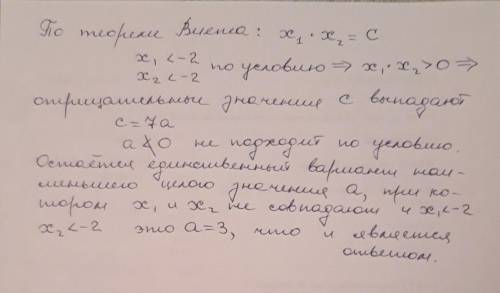 По теореме Виета: x₁ · x₂ = C
x₁ < -2
x₂ < -2 по условию ⇒ x₁ · x₂ > 0 ⇒
отрицательные значения с выпадают
c = 7a
a ≮ 0 не подходит по условию.
Остаётся единственный вариант наи-
меньшего целого значения a, при ко-
тором x₁ и x₂ не совпадают и x₁ < -2
x₂ < -2 это a = 3, что и является
ответом.